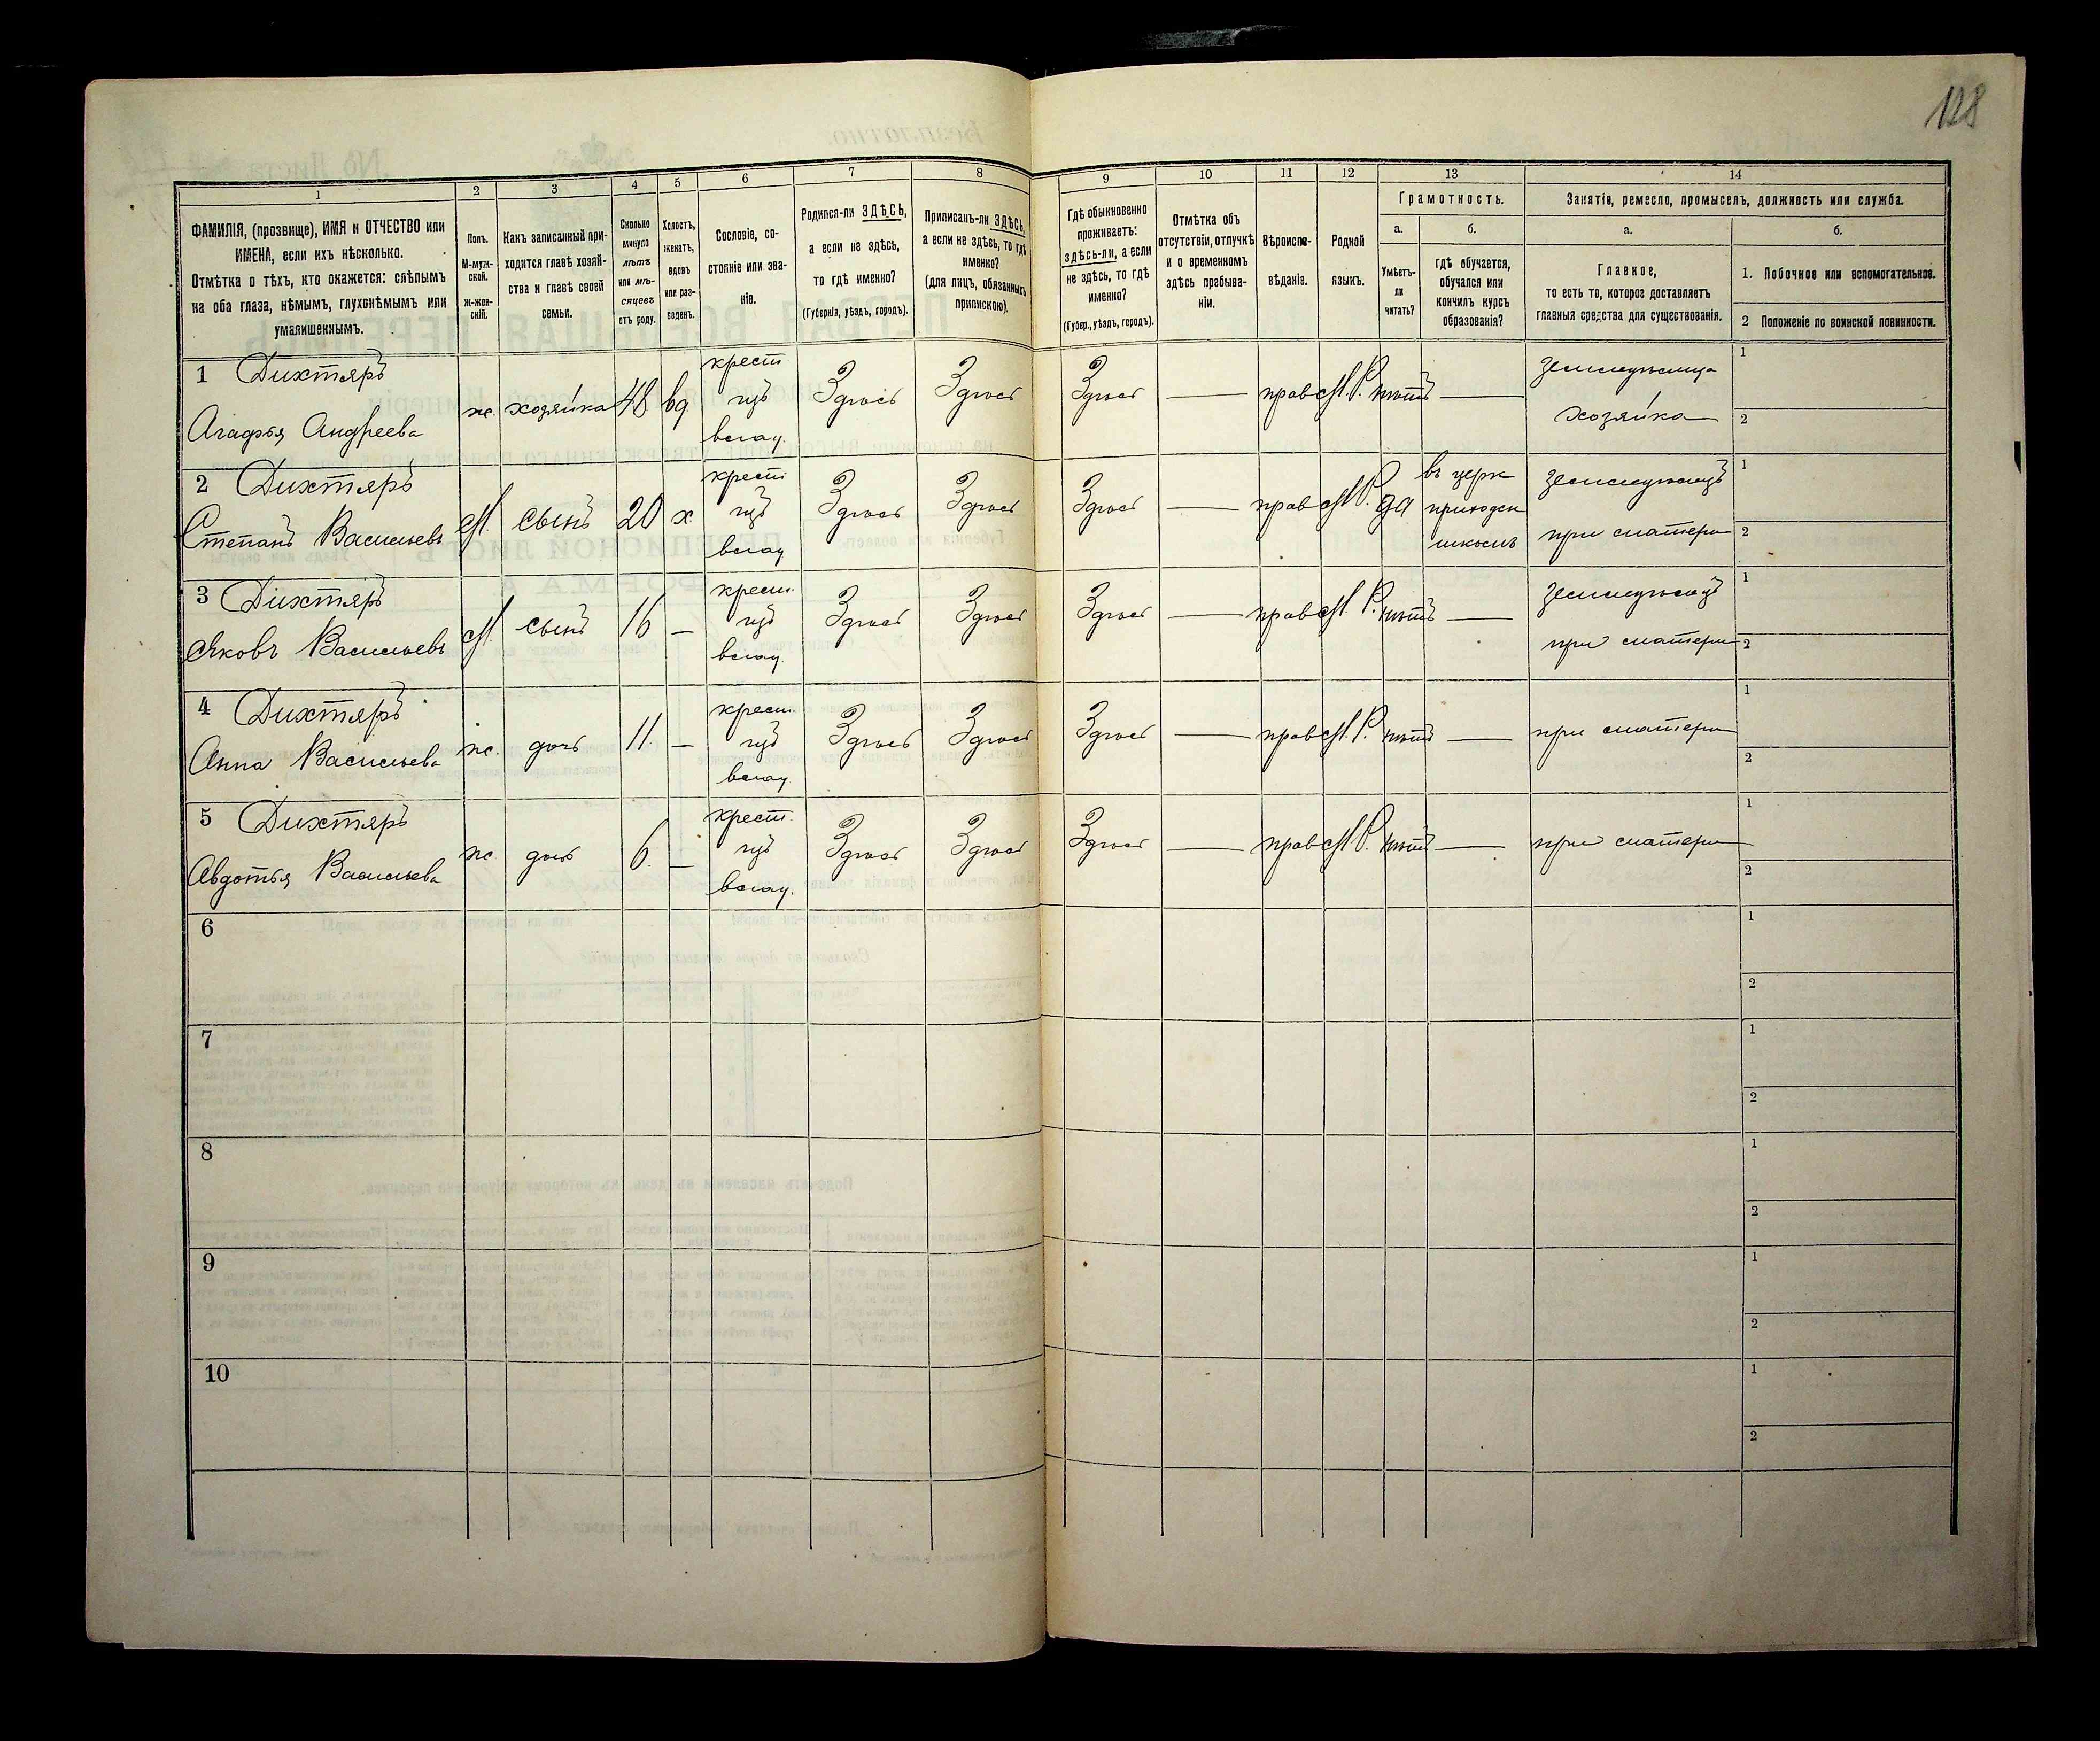 128
1
2
3
4
5
6
7
8
9
10
11
12
13
14
ФАМИЛІЯ, (прозвище), ИМЯ и ОТЧЕСТВО или
ИМЕНА, если ихъ нѣсколько.
Отмѣтка о тѣхъ, кто окажется: слѣпымъ
на оба глаза, нѣмымъ, глухонѣмымъ или
умалишеннымъ.
Полъ.
М-муж-
ской.
Ж-жен-
скій.
Какъ записанный при-
ходится главѣ хозяй-
ства и главѣ своей
семьи.
Сколько
минуло
лѣтъ
или мѣ-
сяцевъ
отъ роду.
Холостъ,
женатъ,
вдовъ
или раз-
веденъ.
Сословіе, со-
стояніе или зва-
ніе.
Родился-ли ЗДѢСЬ,
а если не здѣсь,
то гдѣ именно?
(Губернія, уѣздъ, городъ).
Приписанъ-ли ЗДѢСЬ,
а если не здѣсь, то гдѣ
именно?
(для лицъ, обязанныхъ
припискою).
Гдѣ обыкновенно
проживаетъ:
здѣсь-ли, а если
не здѣсь, то гдѣ
именно?
(Губер., уѣздъ, городъ).
Отмѣтка объ
отсутствіи, отлучкѣ
и о временномъ
здѣсь пребыва-
ніи.
Вѣроиспо-
вѣданіе.
Родной
языкъ.
Грамотность.
а.
Умѣетъ-
ли
читать?
б.
гдѣ обучается,
обучался или
кончилъ курсъ
образованія?
Занятія, ремесло, промыселъ, должность или служба.
а.
Главное,
то есть то, которое доставляетъ
главныя средства для существованія.
б.
1. Побочное или вспомогательное.
2 Положеніе по воинской повинности.
1 Дихтяръ
Агафья Андреева
ж. хозяйка 48 вд. крест изъ Здѣсь Здѣсь Здѣсь — прав М.Р. нѣтъ —
хозяйка
1
2
2 Дихтяръ
Степанъ Васильевъ
М. сынъ 20 х крест изъ Здѣсь Здѣсь Здѣсь — прав М.Р. да
въ церк
приходск
школѣ
при матери
1
2
3 Дихтяръ
Яковъ Васильевъ
М. сынъ 16 — крест. изъ Здѣсь Здѣсь Здѣсь — прав М.Р. нѣтъ —
при матери
1
2
4 Дихтяръ
Анна Васильева
ж. дочь 11. — крест. изъ Здѣсь Здѣсь Здѣсь — прав М.Р. нѣтъ — при матери
1
2
5 Дихтяръ
Авдотья Васильева
ж. дочь 6. — крест. изъ Здѣсь Здѣсь Здѣсь — прав М.Р. нѣтъ — при матери
1
2
6
1
2
7
1
2
8
1
2
9
1
2
10
1
2